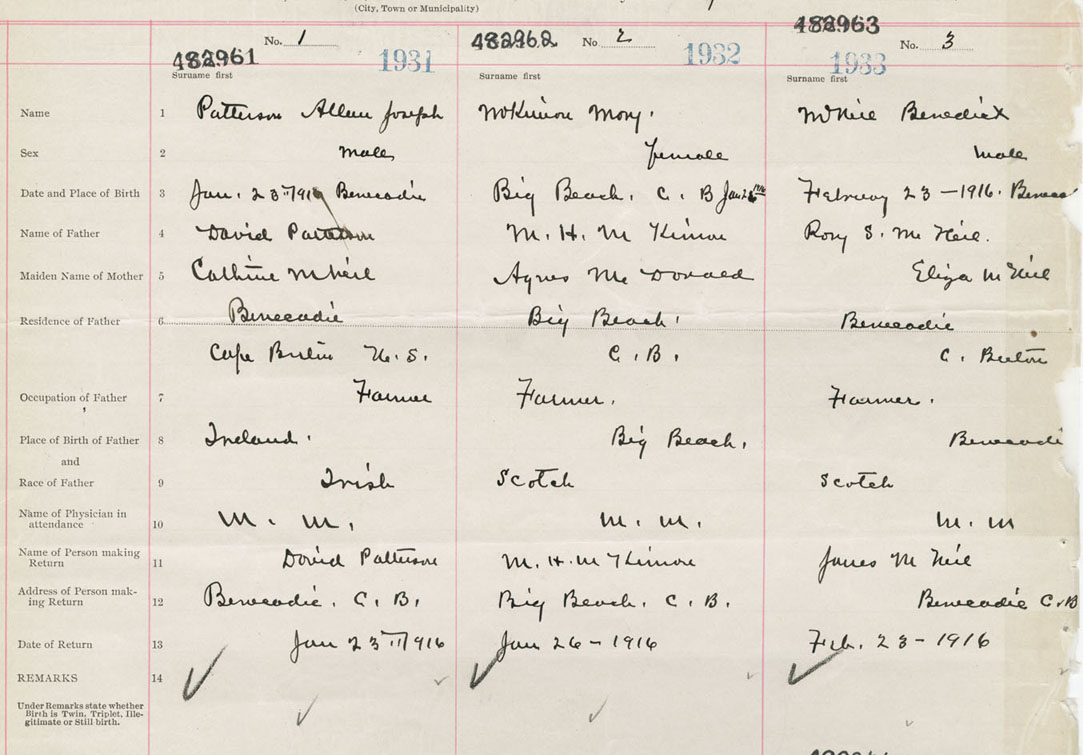 (City, Town or Municipality)
482961 No. 1 1931
482962 No 2 1932
482963 No. 3 1933
Surname first Surname first Surname first
Name 1 Patterson Allan Joseph McKinnon Mary. McNeil Benedict
Sex 2 male female male
Date and Place of Birth 3 Jan. 23 1916 Beneacadie Big Beach, C. B Jan 26 1916 February 23 - 1916.
Name of Father 4 David Patterson M. H. McKinnon Rory S. McNeil.
Maiden Name of Mother 5 McNeil Agnes McDonald Eliza McNeil
Residence of Father 6 Beneacadie Big Beach, Beneacadie
Cape Breton N. S. C. B. C. Breton
Occupation of Father 7 Farmer Farmer. Farmer.
Place of Birth of Father 8 Ireland. Big Beach,
and
Race of Father 9 Irish Scotch Scotch
Name of Physician in
attendance 10 M. M. M. M. M. M
Name of Person making
Return 11 David Patterson M. H. McKinnon James McNeil
Address of Person mak-
ing Return 12 Beneacadie, C. B. Big Beach, C. B. Beneacadie C. B
Date of Return 13 Jan 23 1916 Jan 26 - 1916 Feb. 23 - 1916
REMARKS 14
Under Remarks state whether
Birth is Twin, Triplet, Ille-
gitimate or Still birth.